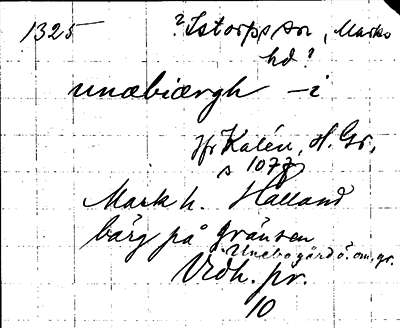 1325 ? Istorps sn, Marks
hd ?
unæbiærgh – i
jfr Kalén, H. Gr,
s 107
Mark h. Halland
bärg på gränsen
Unabogärd o. om. gr.
Vidh. pr.
10